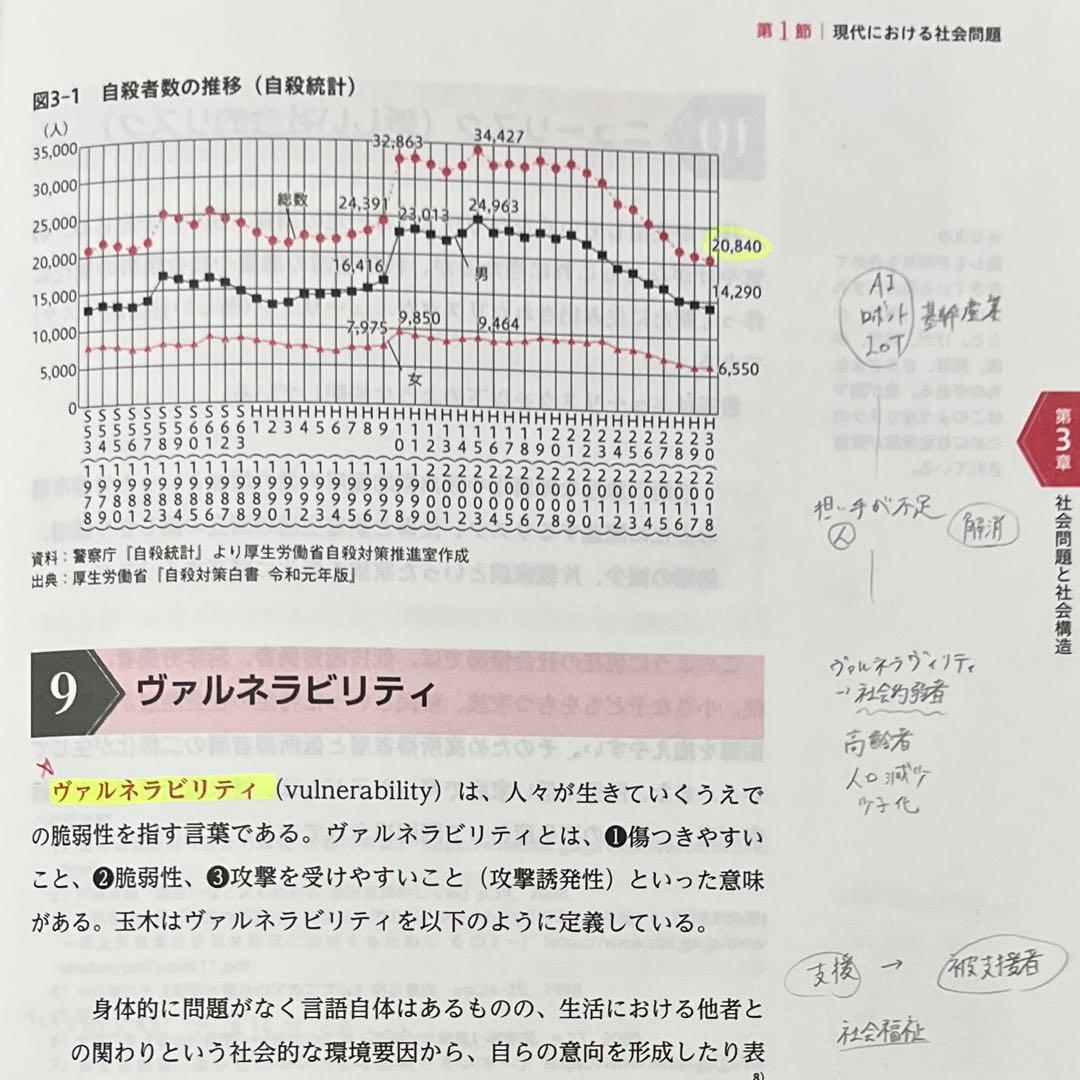 第1節 | 現代における社会問題
図3-1 自殺者数の推移（自殺統計）
（人）
35,000
30,000
25,000
20,000
15,000
10,000
5,000
0
32,863
34,427
総数
24,391
23,013
24,963
20,840
16,416
男
14,290
7,975
9,850
9,464
女
6,550
S53 S54 S55 S56 S57 S58 S59 S60 S61 S62 S63 H1 H2 H3 H4 H5 H6 H7 H8 H9 H10 H11 H12 H13 H14 H15 H16 H17 H18 H19 H20 H21 H22 H23 H24 H25 H26 H27 H28 H29 H30
1978 1979 1980 1981 1982 1983 1984 1985 1986 1987 1988 1989 1990 1991 1992 1993 1994 1995 1996 1997 1998 1999 2000 2001 2002 2003 2004 2005 2006 2007 2008 2009 2010 2011 2012 2013 2014 2015 2016 2017 2018
資料：警察庁『自殺統計』より厚生労働省自殺対策推進室作成
出典：厚生労働省『自殺対策白書 令和元年版』
9 ヴァルネラビリティ
ヴァルネラビリティ（vulnerability）は、人々が生きていくうえで
の脆弱性を指す言葉である。ヴァルネラビリティとは、❶傷つきやすい
こと、❷脆弱性、❸攻撃を受けやすいこと（攻撃誘発性）といった意味
がある。玉木はヴァルネラビリティを以下のように定義している。
身体的に問題がなく言語自体はあるものの、生活における他者と
の関わりという社会的な環境要因から、自らの意向を形成したり表
8)
AI
ロボット 基幹産業
IoT
担い手が不足
人
解消
ヴァルネラヴィリティ
→社会的弱者
高齢者
人口減少
少子化
支援 → 被支援者
社会福祉
第3章 社会問題と社会構造